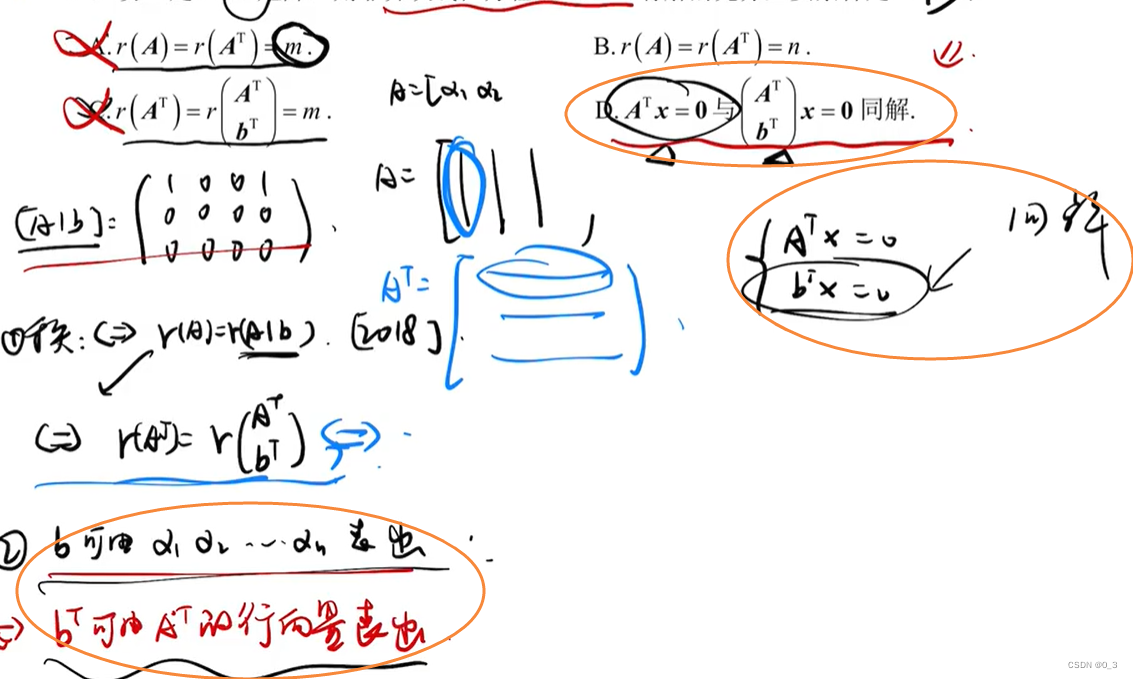 A. r(A) = r(Aᵀ) = m .
B. r(A) = r(Aᵀ) = n .
C. r(Aᵀ) = r(Aᵀ bᵀ) = m .
D. Aᵀx = 0 与 (Aᵀ bᵀ) x = 0 同解.
A = [α₁ α₂
A =
[A|b] =
1 0 0 1
0 0 0 0
0 0 0 0
Aᵀ =
Aᵀx = 0
bᵀx = 0
同解
⇔ r(A) = r(A|b) . [2018] .
⇔ r(Aᵀ) = r(Aᵀ bᵀ) ⇔
② b可由 α₁ α₂ ⋯ αₙ 表出
bᵀ可由 Aᵀ的行向量表出
CSDN @0_3